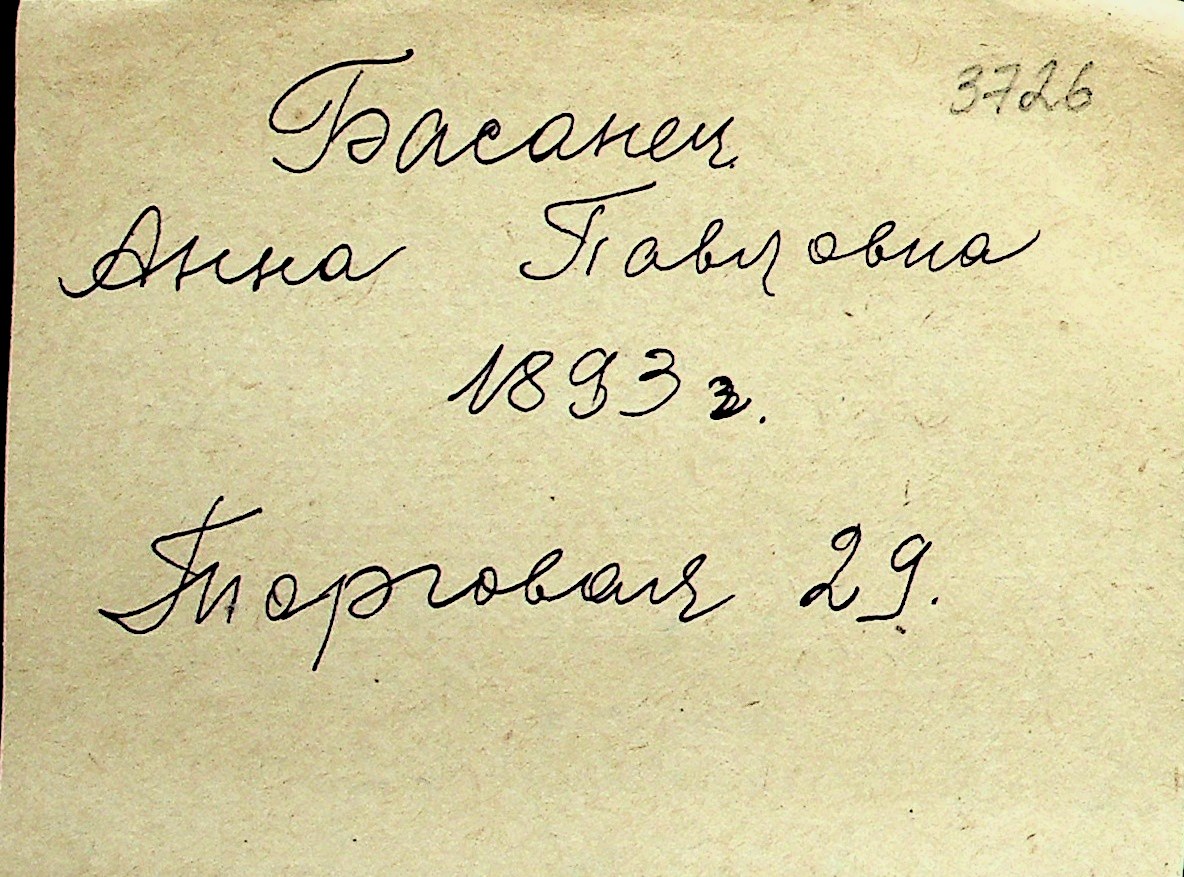 3726
Басанец
Анна Павловна
1893 г.
Торговая 29.